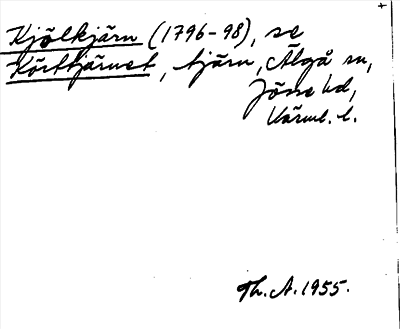 Kjölkjärn (1796-98), se
Körttjärnet, tjärn, Älgå sn,
Jösse hd,
Värml. l.
Th. A. 1955.